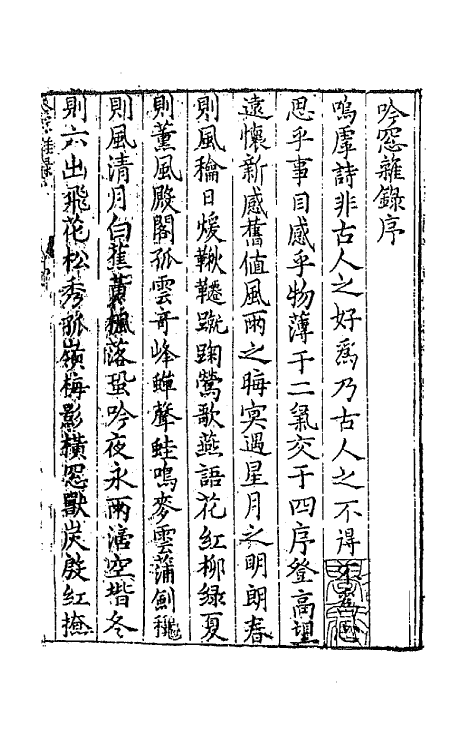 吟窓雜錄序
嗚虖詩非古人之好爲乃古人之不得
思乎事目感乎物薄于二氣交于四序登高望
遠懷新感舊值風雨之晦冥遇星月之明朗春
則風龢日煖鞦韆蹴踘鶯歌燕語花紅柳綠夏
則薰風殿閣孤雲奇峰蟬聲蛙鳴麥雲蒲劍龝
則風清月白蕉黃楓落蛩吟夜永雨滴空堦冬
則六出飛花松秀孤嶺梅影橫窓獸炭殷紅撫